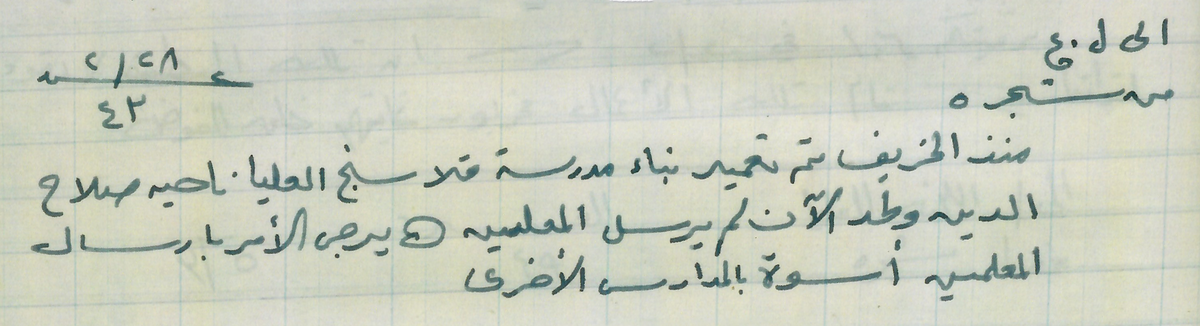 الى ل.ع
٢/٢٨
٤٣
من شجره
منذ الخريف تم تعمير بناء مدرسة قلا سنج العليا ناحيه صلاح
الدين ولحد الآن لم يرسل المعلمين ه يرجى الأمر بارسال
المعلمين أسوة بالمدارس الأخرى